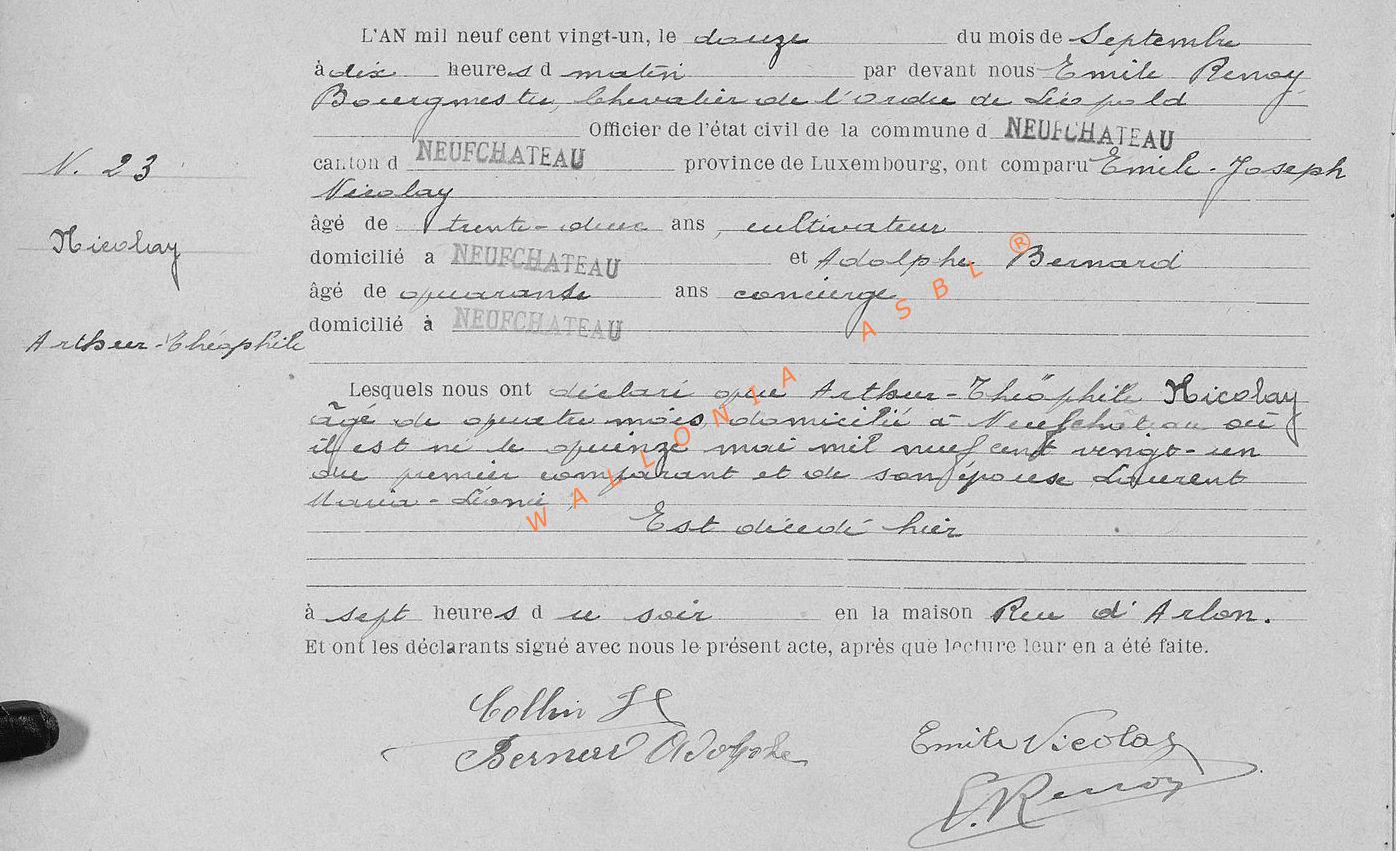 L'AN mil neuf cent vingt-un, le douze du mois de Septembre
à dix heures d matin par devant nous Emile Renoy
Bourgmestre, Chevalier de l'Ordre de Léopold
Officier de l'état civil de la commune d NEUFCHATEAU
canton d NEUFCHATEAU province de Luxembourg, ont comparu Emile-Joseph
Nicolay
âgé de trente-deux ans, cultivateur
domicilié a NEUFCHATEAU et Adolphe Bernard
âgé de quarante ans concierge
domicilié à NEUFCHATEAU
N. 23
Nicolay
Arthur-Théophile
Lesquels nous ont déclaré que Arthur-Théophile Nicolay
âgé de quatre mois, domicilié à Neufchâteau où
il est né le quinze mai mil neuf cent vingt-un
du premier comparant et de son épouse Laurent
Maria-Léonie
Est décédé hier
à sept heures d u soir en la maison Rue d'Arlon.
Et ont les déclarants signé avec nous le présent acte, après que lecture leur en a été faite.
Collin
Bernard Adolphe
Emile Nicolay
E. Renoy
WALLONIA ASBL ®